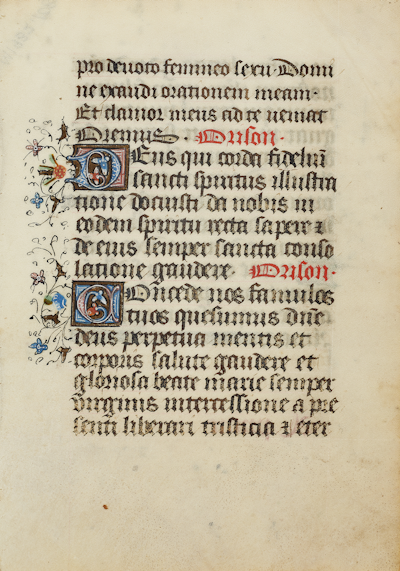 pro devoto femineo sexu. Domi
ne exaudi orationem meam.
Et clamor meus ad te veniat
Oremus. Orison.
Deus qui corda fideliū
sancti spiritus illustra
tione docuisti da nobis in
eodem spiritu recta sapere ⁊
de eius semper sancta conso
latione gaudere. Orison.
Concede nos famulos
tuos quesumus dn̄e
deus perpetua mentis et
corporis salute gaudere et
gloriosa beate marie semper
virginis intercessione a pre
senti liberari tristicia ⁊ eter